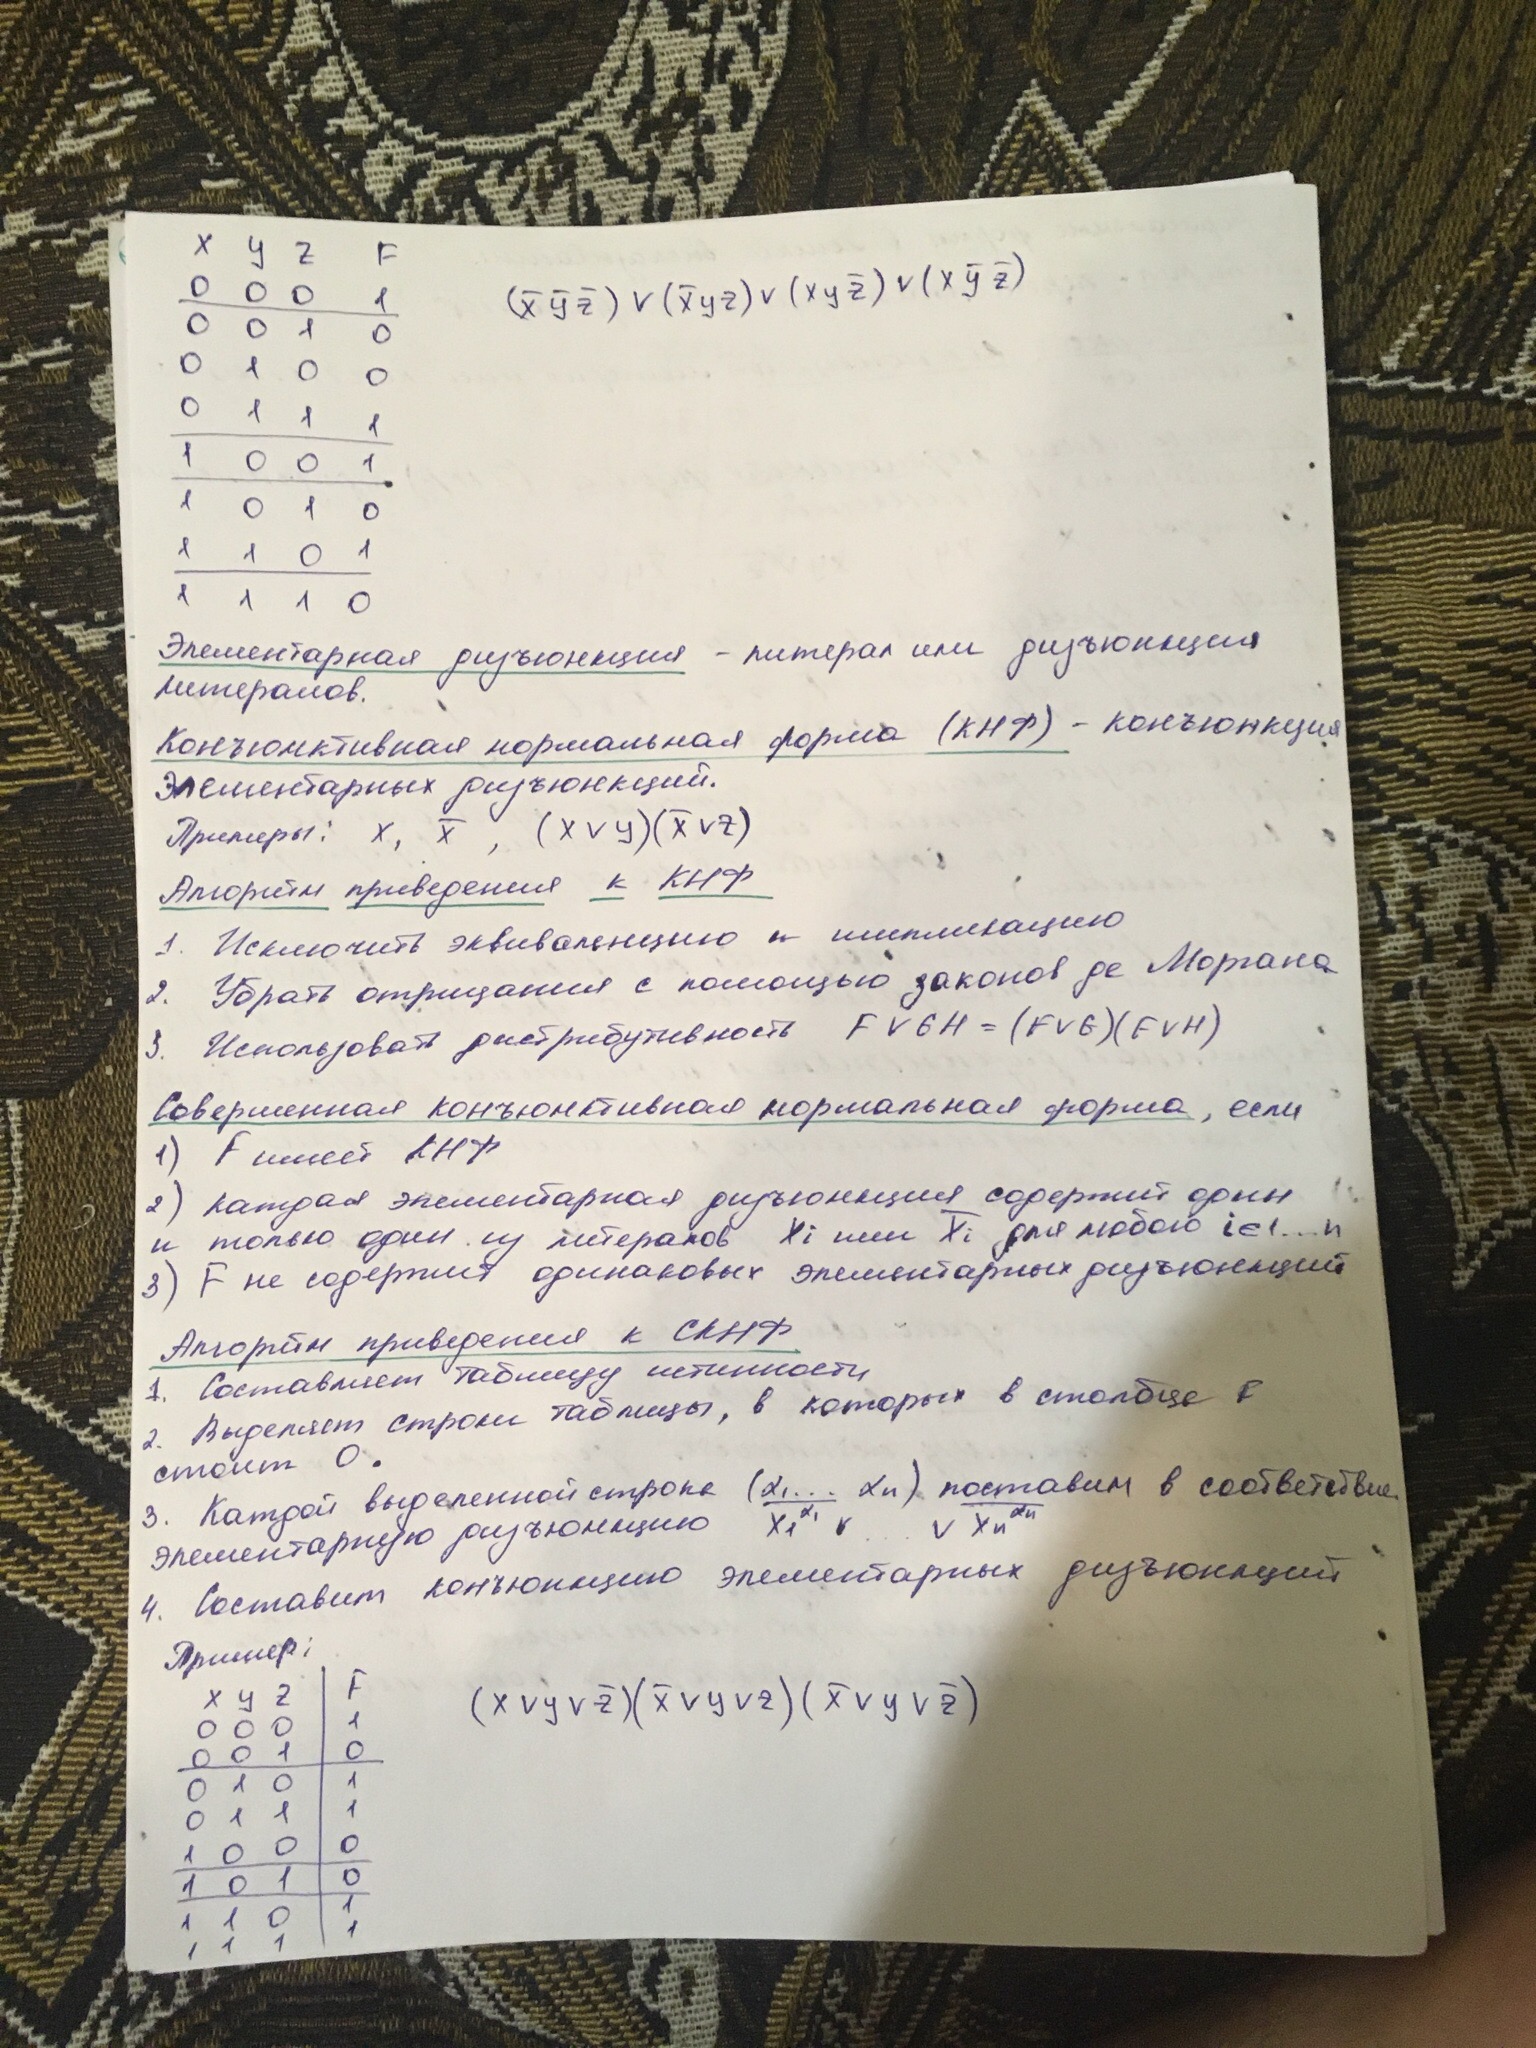 x y z F
0 0 0 1 (x̄ ȳ z̄) ∨ (x̄ y z) ∨ (x y z̄) ∨ (x ȳ z̄)
0 0 1 0
0 1 0 0
0 1 1 1
1 0 0 1
1 0 1 0
1 1 0 1
1 1 1 0
Элементарная дизъюнкция - литерал или дизъюнкция
литералов.
Конъюнктивная нормальная форма (КНФ) - конъюнкция
элементарных дизъюнкций.
Примеры: x, x̄ , (x ∨ y)(x̄ ∨ z)
Алгоритм приведения к КНФ
1. Исключить эквиваленцию и импликацию
2. Убрать отрицания с помощью законов де Моргана
3. Использовать дистрибутивность F ∨ G H = (F ∨ G)(F ∨ H)
Совершенная конъюнктивная нормальная форма, если
1) F имеет КНФ
2) каждая элементарная дизъюнкция содержит один
и только один из литералов Xi или X̄i для любого i ∈ 1...n
3) F не содержит одинаковых элементарных дизъюнкций
Алгоритм приведения к СКНФ
1. Составляем таблицу истинности
2. Выделяем строки таблицы, в которых в столбце F
стоит 0.
3. Каждой выделенной строке (α₁... αn) поставим в соответствие
элементарную дизъюнкцию \overline{x₁^α₁} ∨ ... ∨ \overline{xn^αn}
4. Составим конъюнкцию элементарных дизъюнкций
Пример:
x y z F (x ∨ y ∨ z̄)(x̄ ∨ y ∨ z)(x̄ ∨ y ∨ z̄)
0 0 0 1
0 0 1 0
0 1 0 1
0 1 1 1
1 0 0 0
1 0 1 0
1 1 0 1
1 1 1 1